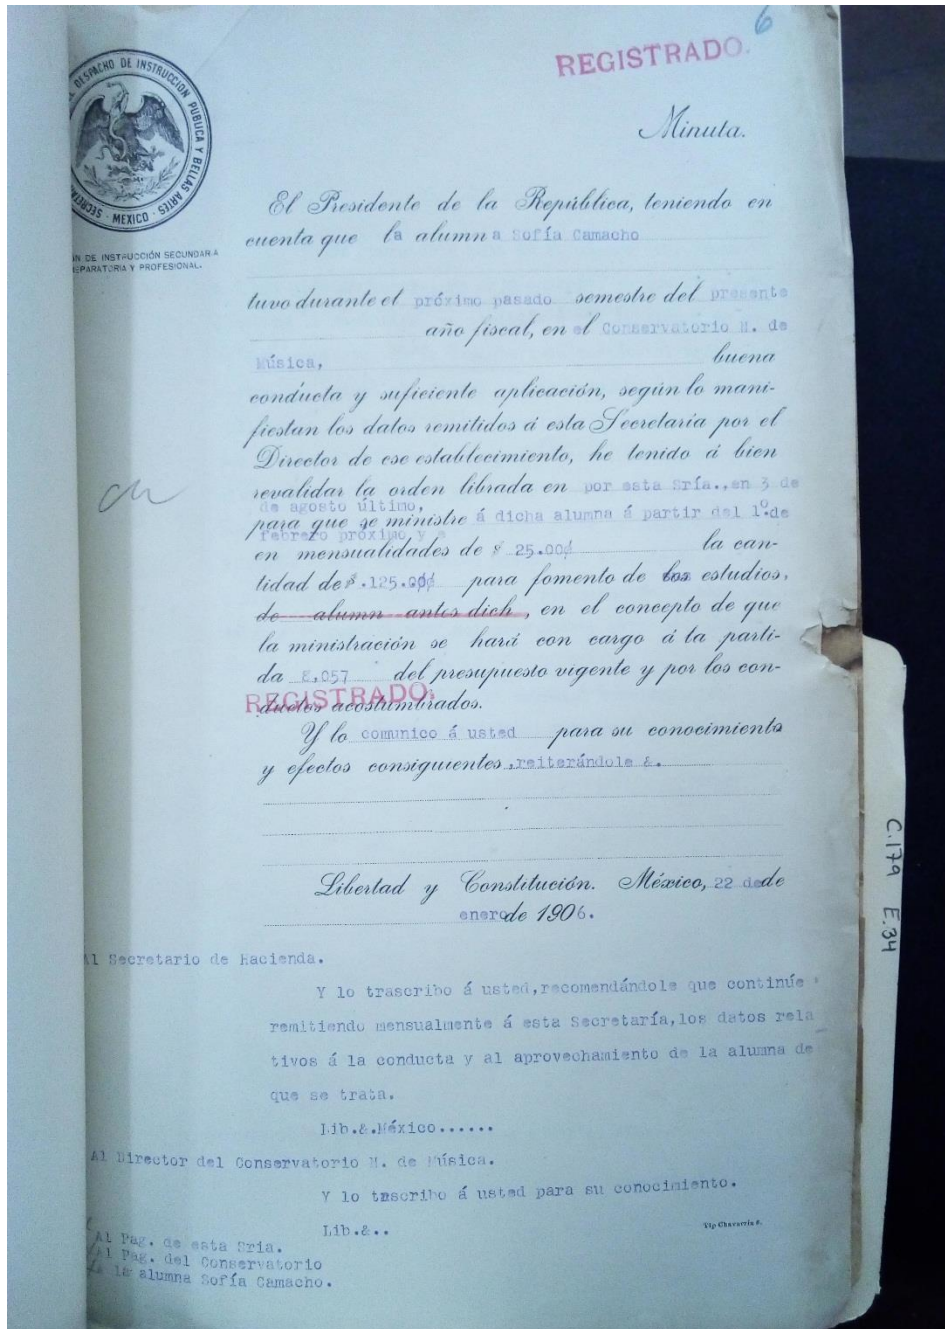 6
REGISTRADO.
DESPACHO DE INSTRUCCION PUBLICA Y BELLAS ARTES
MEXICO
DE INSTRUCCIÓN SECUNDARIA
PROFESIONAL.
Minuta.
El Presidente de la República, teniendo en
cuenta que la alumna Sofía Camacho
tuvo durante el próximo pasado semestre del presente
año fiscal, en el Conservatorio N. de
Música, buena
conducta y suficiente aplicación, según lo mani-
fiestan los datos remitidos á esta Secretaría por el
Director de ese establecimiento, he tenido á bien
revalidar la orden librada en por esta Sría., en 3 de
de agosto último,
para que se ministre á dicha alumna á partir del 1º. de
febrero próximo y
en mensualidades de $ 25.00 la can-
tidad de $.125.00 para fomento de estudios,
de alumn antes dich, en el concepto de que
la ministración se hará con cargo á la parti-
da 8,057 del presupuesto vigente y por los con-
REGISTRADO.
ductos acostumbrados.
Y lo comunico á usted para su conocimiento
y efectos consiguientes, reiterándole &.
Libertad y Constitución. México, 22 de de
enero de 1906.
Al Secretario de Hacienda.
Y lo trascribo á usted, recomendándole que continúe
remitiendo mensualmente á esta Secretaría, los datos rela
tivos á la conducta y al aprovechamiento de la alumna de
que se trata.
Lib.&.México......
Al Director del Conservatorio N. de Música.
Y lo trascribo á usted para su conocimiento.
Lib.&..
Tip Chavarria
Al Pag. de esta Sria.
Al Pag. del Conservatorio
A la alumna Sofía Camacho.
C.179 E.34